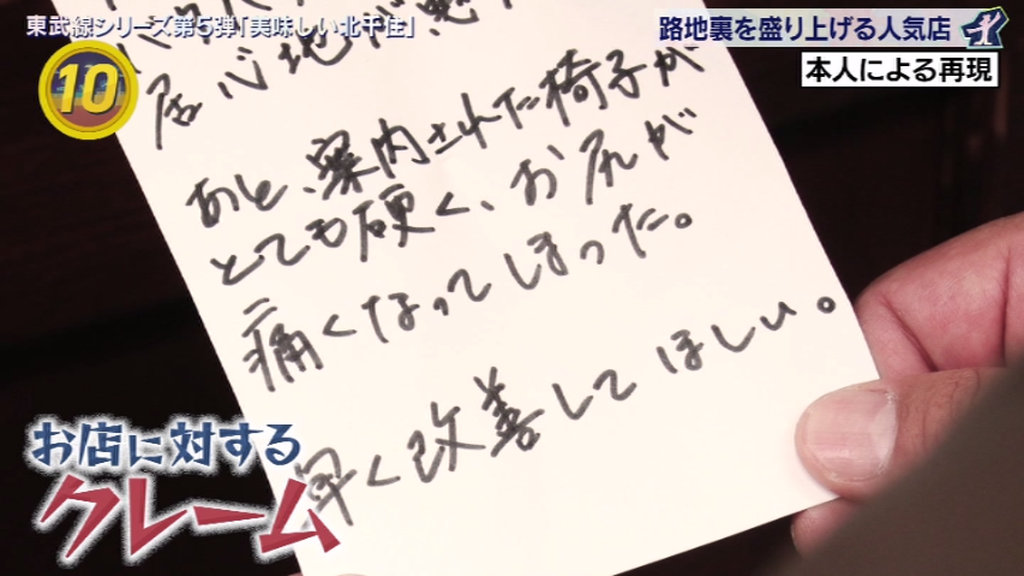 東武線シリーズ第5弾「美味しい北千住」
路地裏を盛り上げる人気店
本人による再現
10
居心地が悪
あと、案内された椅子が
とても硬く、お尻が
痛くなってしまった。
早く改善してほしい。
お店に対する
クレーム